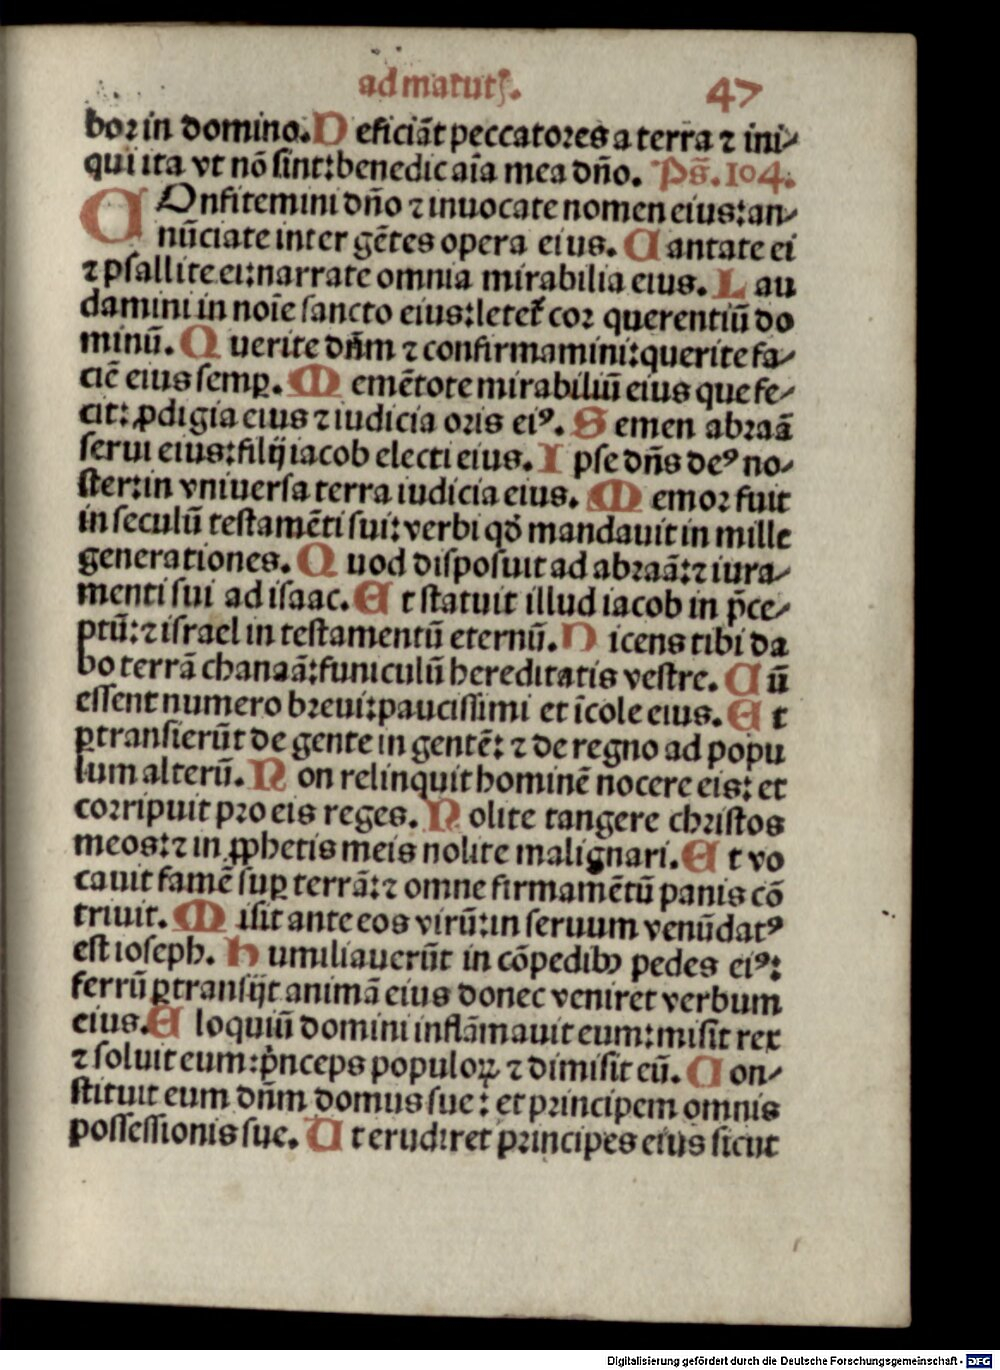 ad matutꝭ. 47
bor in domino. Deficiãt peccatores a terra ⁊ ini-
qui ita vt nõ sint: benedic aĩa mea dño. Ps̃. 104.
COnfitemini dño ⁊ inuocate nomen eius: an-
nũciate inter gẽtes opera eius. Cantate ei
⁊ psallite ei: narrate omnia mirabilia eius. Lau
damini in noĩe sancto eius: letet᷑ cor querentiũ do
minũ. Querite dñm ⁊ confirmamini: querite fa-
ciẽ eius semꝑ. Memẽtote mirabiliũ eius que fe-
cit: ꝓdigia eius ⁊ iudicia oris eiꝰ. Semen abraã
serui eius: filij iacob electi eius. Ipse dñs deꝰ no-
ster: in vniuersa terra iudicia eius. Memor fuit
in seculũ testamẽti sui: verbi qđ mandauit in mille
generationes. Quod disposuit ad abraã: ⁊ iura-
menti sui ad isaac. Et statuit illud iacob in p̃ce-
ptũ: ⁊ israel in testamentũ eternũ. Dicens tibi da
bo terrã chanaã: funiculũ hereditatis vestre. Cũ
essent numero breui: paucissimi et ĩcole eius. Et
ꝑtransierũt de gente in gentẽ: ⁊ de regno ad popu
lum alterũ. Non relinquit hominẽ nocere eis: et
corripuit pro eis reges. Nolite tangere christos
meos: ⁊ in ꝓphetis meis nolite malignari. Et vo
cauit famẽ suꝑ terrã: ⁊ omne firmamẽtũ panis cõ
triuit. Misit ante eos virũ: in seruum venũdatꝰ
est ioseph. Humiliauerũt in cõpedibꝫ pedes eiꝰ:
ferrũ ꝑtransijt animã eius donec veniret verbum
eius. Eloquiũ domini inflãmauit eum: misit rex
⁊ soluit eum: pͥnceps populoꝝ ⁊ dimisit eũ. Con-
stituit eum dñm domus sue: et principem omnis
possessionis sue. Ut erudiret principes eius sicut
Digitalisierung gefördert durch die Deutsche Forschungsgemeinschaft - DFG